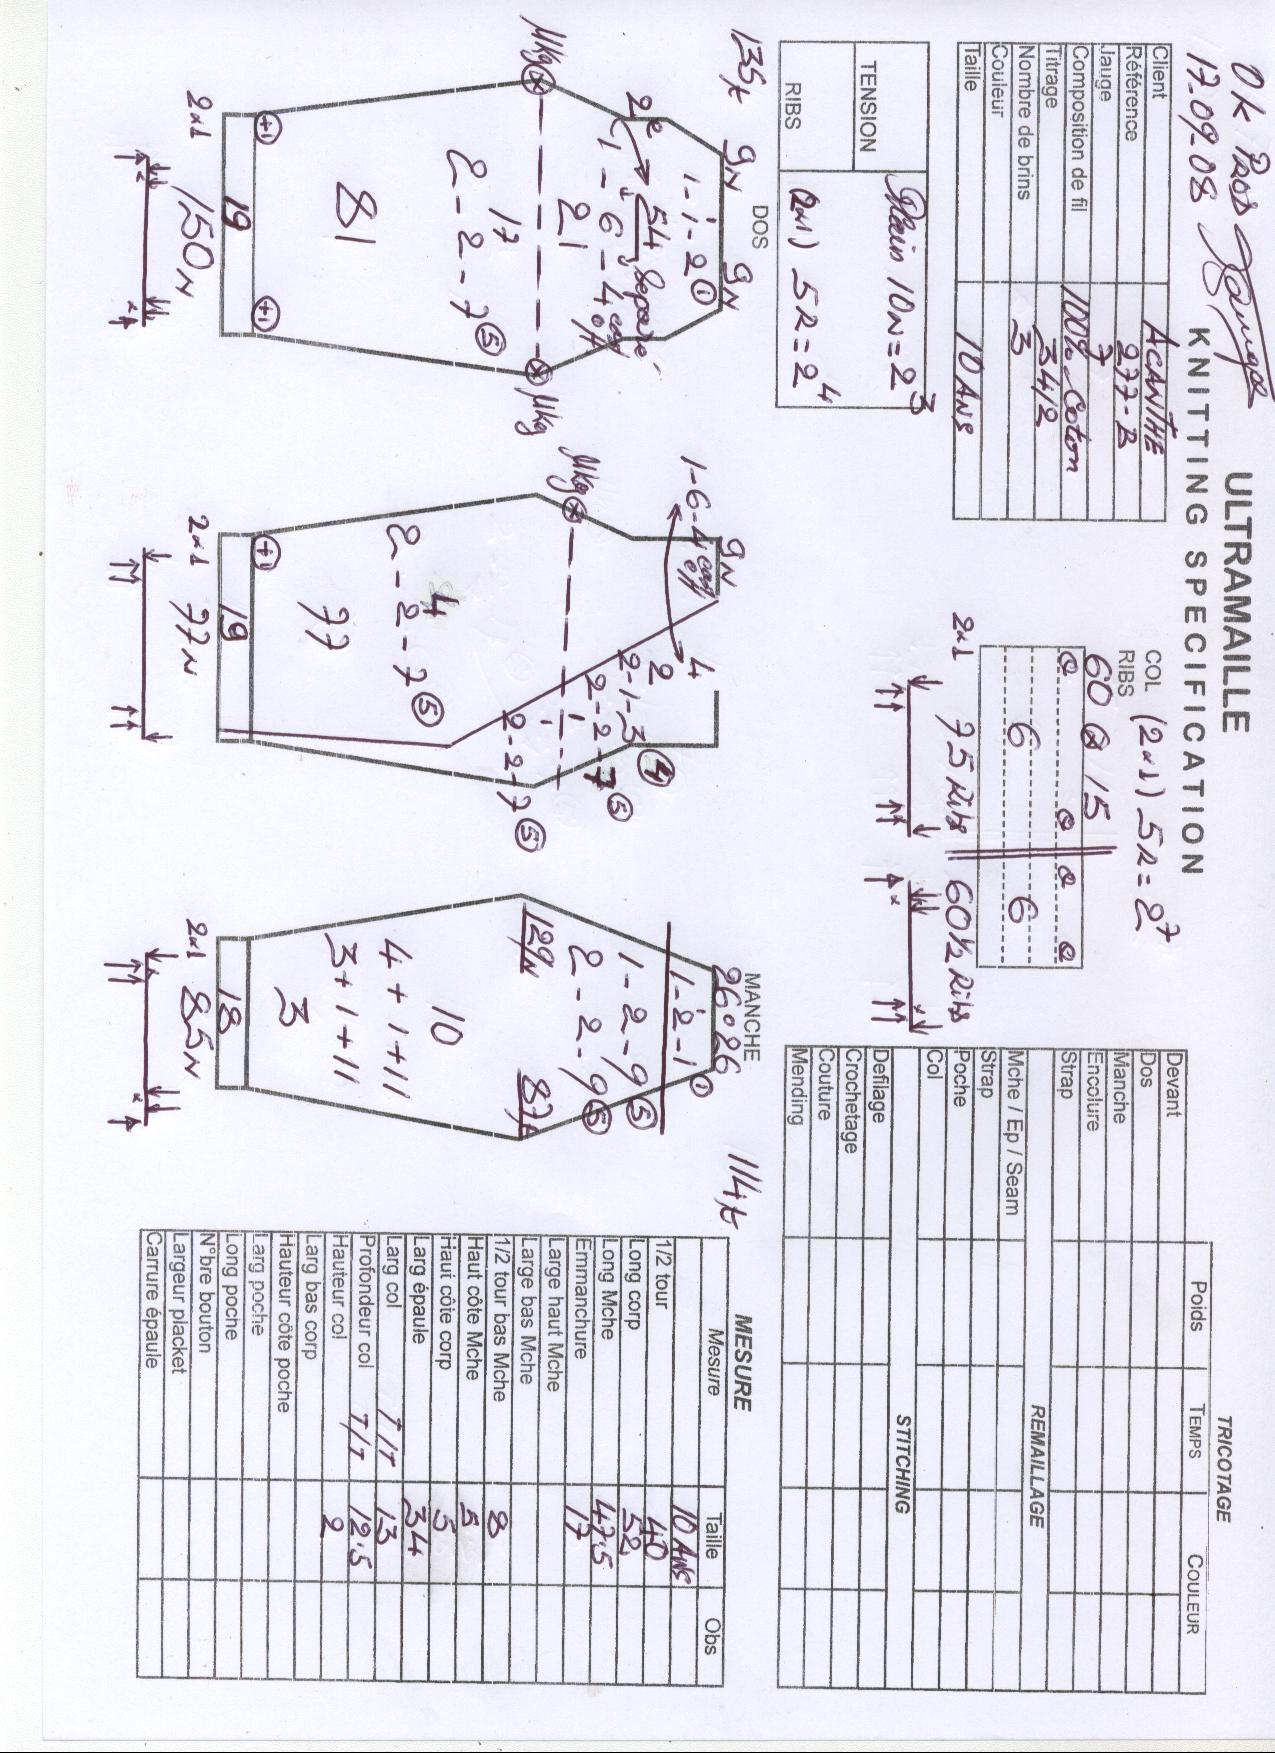 OK PROD
17-09-08
ULTRAMAILLE
KNITTING SPECIFICATION
Client ACANTHE
Référence 277-B
Jauge 7
Composition de fil 100% Coton
Titrage 34/2
Nombre de brins 3
Couleur
Taille 10 ANS
COL (2x1) 5R = 2⁷
RIBS
60 15
6 6
2x1 75 Ribs 60½ Ribs
TENSION Plain 10N = 2³
RIBS (2x1) 5R = 2⁴
TRICOTAGE
Poids TEMPS COULEUR
Devant
Dos
Manche
Encolure
Strap
REMAILLAGE
Mche / Ep / Seam
Strap
Poche
Col
STITCHING
Defilage
Crochetage
Couture
Mending
DOS
135t
9N 9N
1-1-2 ①
54 Separé
2e
1 - 6 - 4 cast off
21
Mkg Mkg
17
2-2-7 ⑤
81
+1 +1
19
2x1 150N
9N
1-6-4 cast off 4
2
2-1-3 ④
2-2-7 ⑤
Mkg
1
1
2-2-7 ⑤
4
2-2-7 ⑤
77
+1
19
2x1 77N
MANCHE
114t
26 o 26
1-2-1 ①
1-2-9 ⑤
2-2-9 ⑤
129N 87t
10
4+1+11
3+1+11
3
18
2x1 85N
MESURE
Mesure Taille Obs
10 ANS
1/2 tour 40
Long corp 52
Long Mche 47.5
Emmanchure 17
Large haut Mche
Large bas Mche
1/2 tour bas Mche 8
Haut côte Mche 5
Haut côte corp 5
Larg épaule 34
Larg col T/T 13
Profondeur col T/T 12.5
Hauteur col 2
Larg bas corp
Hauteur côte poche
Larg poche
Long poche
N°bre bouton
Largeur placket
Carrure épaule